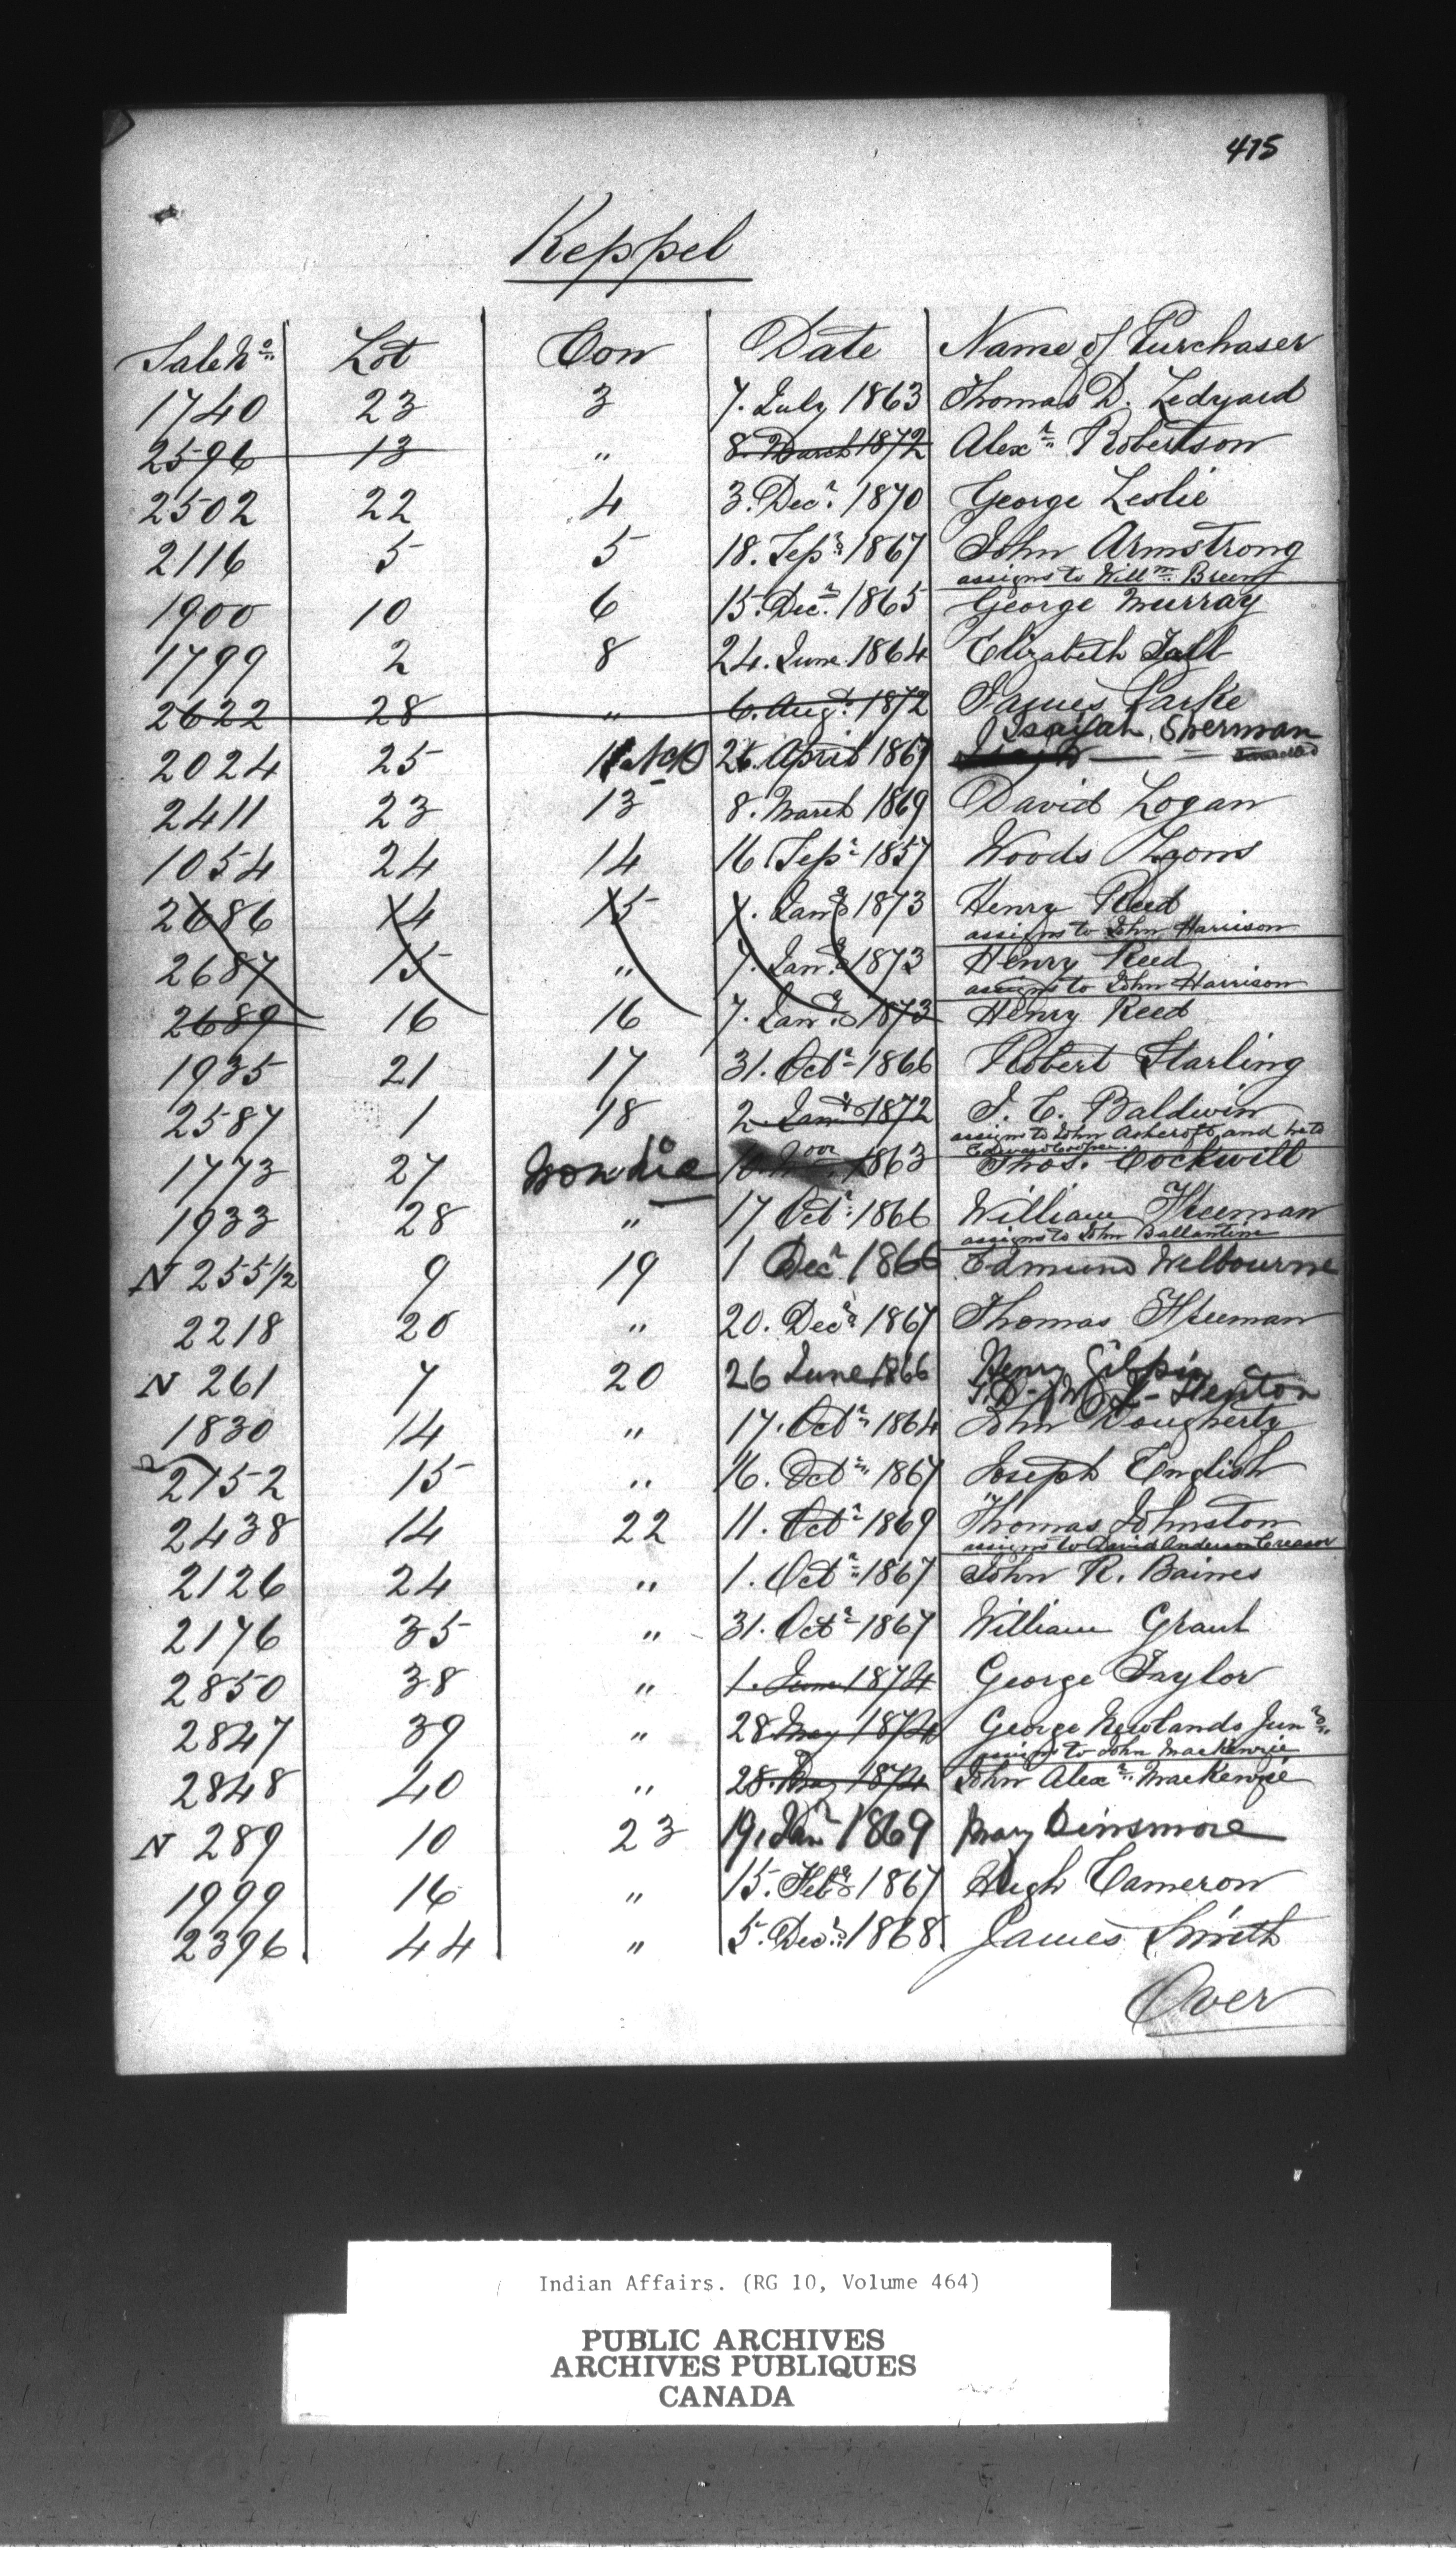 475
Keppel
Sale No. Lot Con Date Name of Purchaser
1740 23 3 7. July 1863 Thomas D. Ledyard
2596 13 " 8. March 1872 Alexr. Robertson
2502 22 4 3. Decr. 1870 George Leslie
2116 5 5 18. Sepr. 1867 John Armstrong
assigns to Willm.
1900 10 6 15. Decr. 1865 George Murray
1799 2 8 24. June 1864 Elizabeth
2622 28 " 6. Augt. 1872 James Parke
Isaijah Sherman
2024 25 11 NCD 26. April 1867
2411 23 13 8. March 1869 David Logan
1054 24 14 16 Sepr 1857 Woods Lyons
2686 14 15 7. Jany 1873 Henry Reed
assigns to John Harrison
2687 15 " 7. Jany 1873 Henry Reed
assigns to John Harrison
2689 16 16 7. Jany 1873 Henry Reed
1935 21 17 31. Octr 1866 Robert Starling
2587 1 18 2. Jany 1872 J. C. Baldwin
assigns to John Ashcroft and he to
Edward Cooper
1773 27 10. Novr 1863 Thos. Cockwill
1933 28 " 17 Octr. 1866 William Steeman
assigns to John Ballantine
N 255 1/2 9 19 1 Decr 1866 Edmund Welbourne
2218 20 " 20. Decr 1867 Thomas Steeman
N 261 7 20 26 June 1866 Henry Gilpin
1830 14 " 17. Octr 1864 John Dougherty
2152 15 " 16. Octr 1867 Joseph English
2438 14 22 11. Octr 1869 Thomas Johnston
assigns to David Anderson Creasor
2126 24 " 1. Octr 1867 John R. Baines
2176 35 " 31. Octr 1867 William Grant
2850 38 " 1. June 1874 George Taylor
2847 39 " 28 May 1874 George Newlands Junr.
assigns to John MacKenzie
2848 40 " 28. May 1874 John Alexr. MacKenzie
N 289 10 23 19. Jany 1869 Mary Dinsmore
1999 16 " 15. Feby 1867 Hugh Cameron
2396 44 " 5. Decr. 1868. James Smith
Over
Indian Affairs. (RG 10, Volume 464)
PUBLIC ARCHIVES
ARCHIVES PUBLIQUES
CANADA